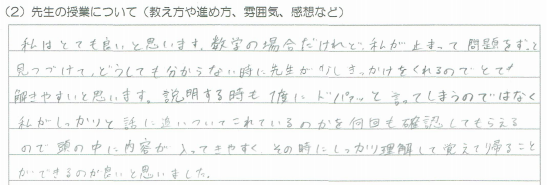 (2) 先生の授業について（教え方や進め方、雰囲気、感想など）
私はとても良いと思います。数学の場合だけれど、私が止まって問題をずっと
見つづけて、どうしても分からない時に先生が少しきっかけをくれるのでとても
解きやすいと思います。説明する時も1度にドバァッと言ってしまうのではなく
私がしっかりと話に追いついてこれているのかを何回も確認してもらえる
ので頭の中に内容が入ってきやすく、その時にしっかり理解して覚えて帰ること
ができるのが良いと思いました。